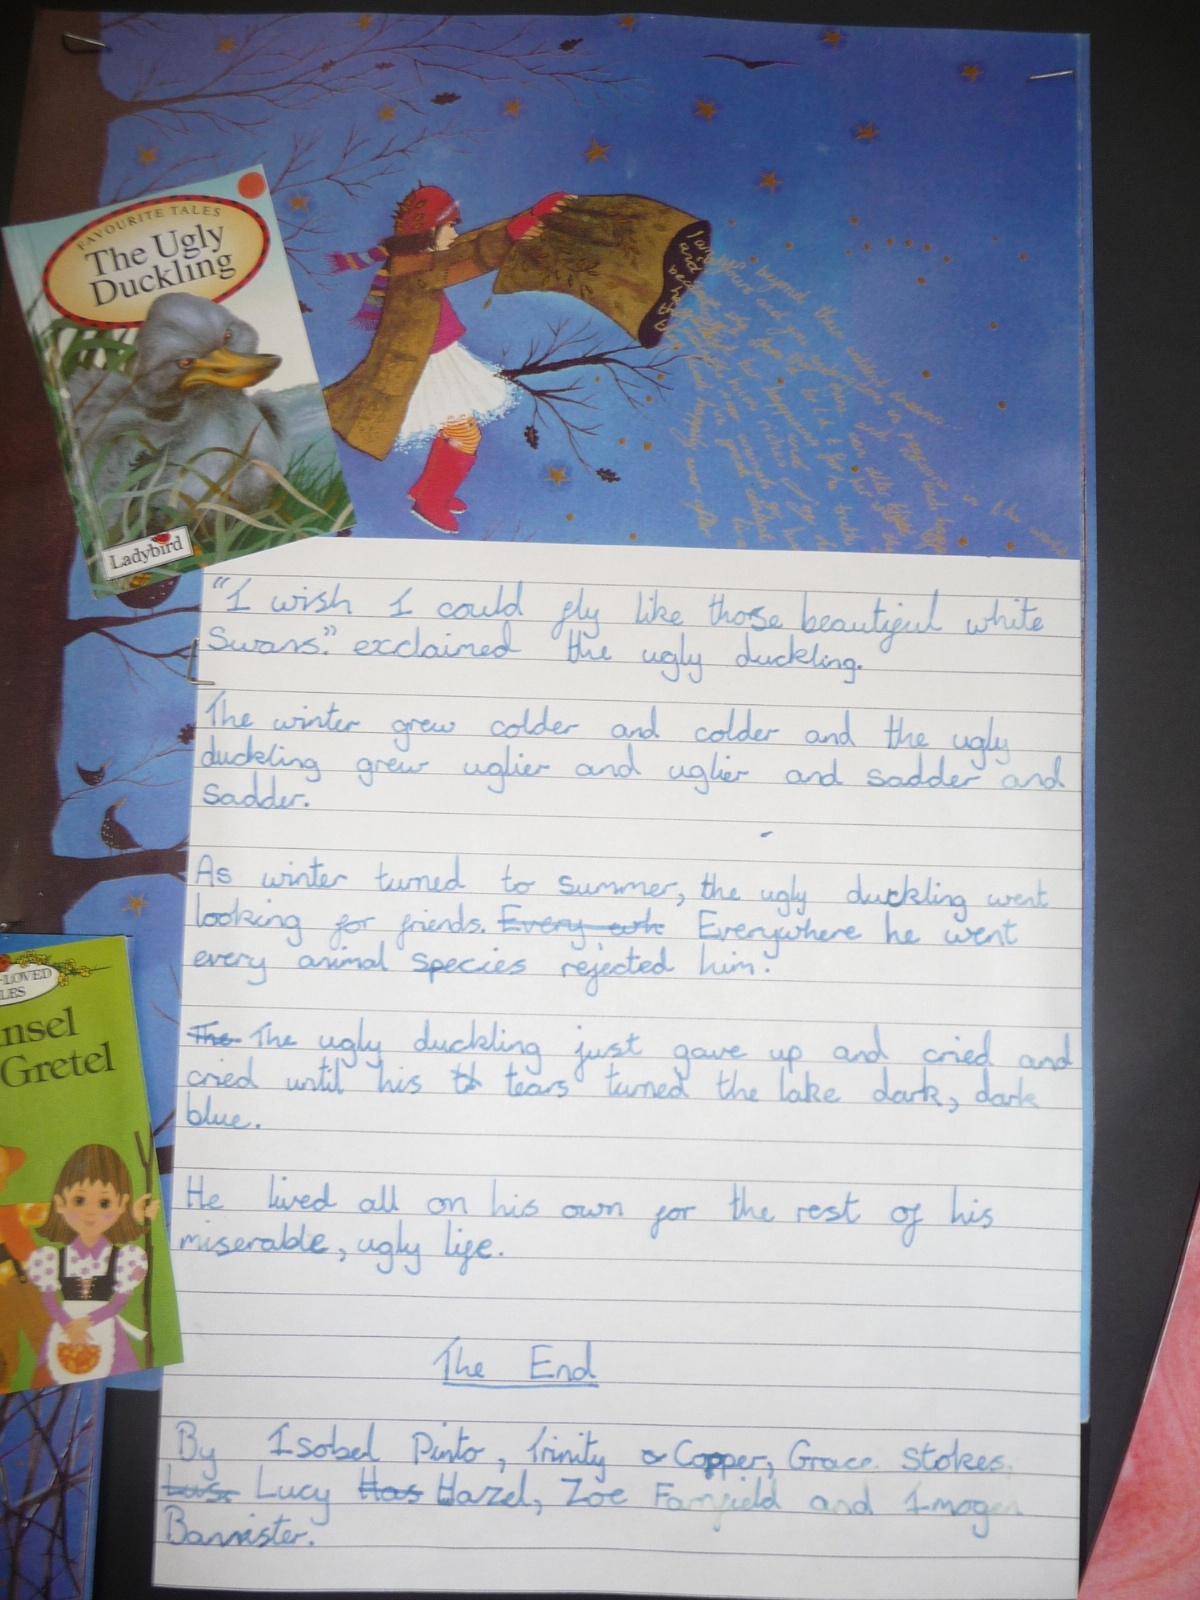 FAVOURITE TALES
The Ugly
Duckling
Ladybird
"I wish I could fly like those beautiful white
Swans." exclaimed the ugly duckling.
The winter grew colder and colder and the ugly
duckling grew uglier and uglier and sadder and
sadder.
As winter turned to summer, the ugly duckling went
looking for friends. Every wh Everywhere he went
every animal species rejected him.
The The ugly duckling just gave up and cried and
cried until his th tears turned the lake dark, dark
blue.
He lived all on his own for the rest of his
miserable, ugly life.
The End
By Isobel Pinto, Trinity Copper, Grace Stokes,
Lucy Has Hazel, Zoe Farnfield and Imogen
Bannister.
-LOVED
LES
nsel
Gretel